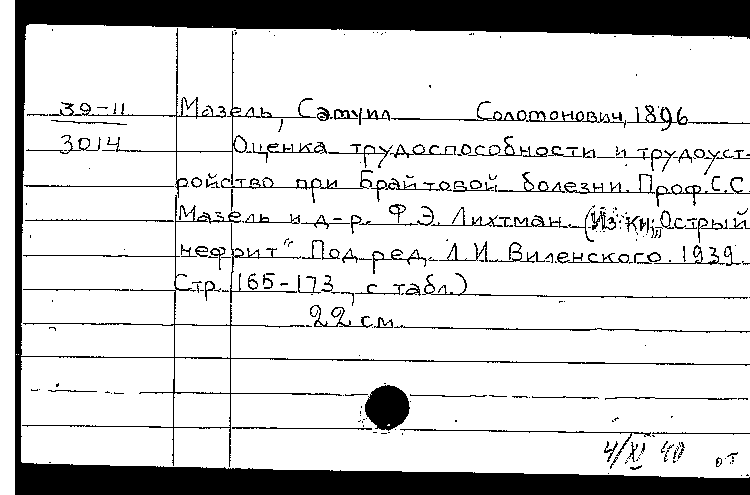 39-11 Мазель, Самуил Соломонович, 1896
3014 Оценка трудоспособности и трудоуст-
ройство при Брайтовой болезни. Проф. С.С.
Мазель и д-р. Ф.Э. Лихтман. (Из кн: „Острый
нефрит“ Под ред. Л.И. Виленского. 1939.
Стр. 165-173, с табл.)
22 см.
4/XI 40 от